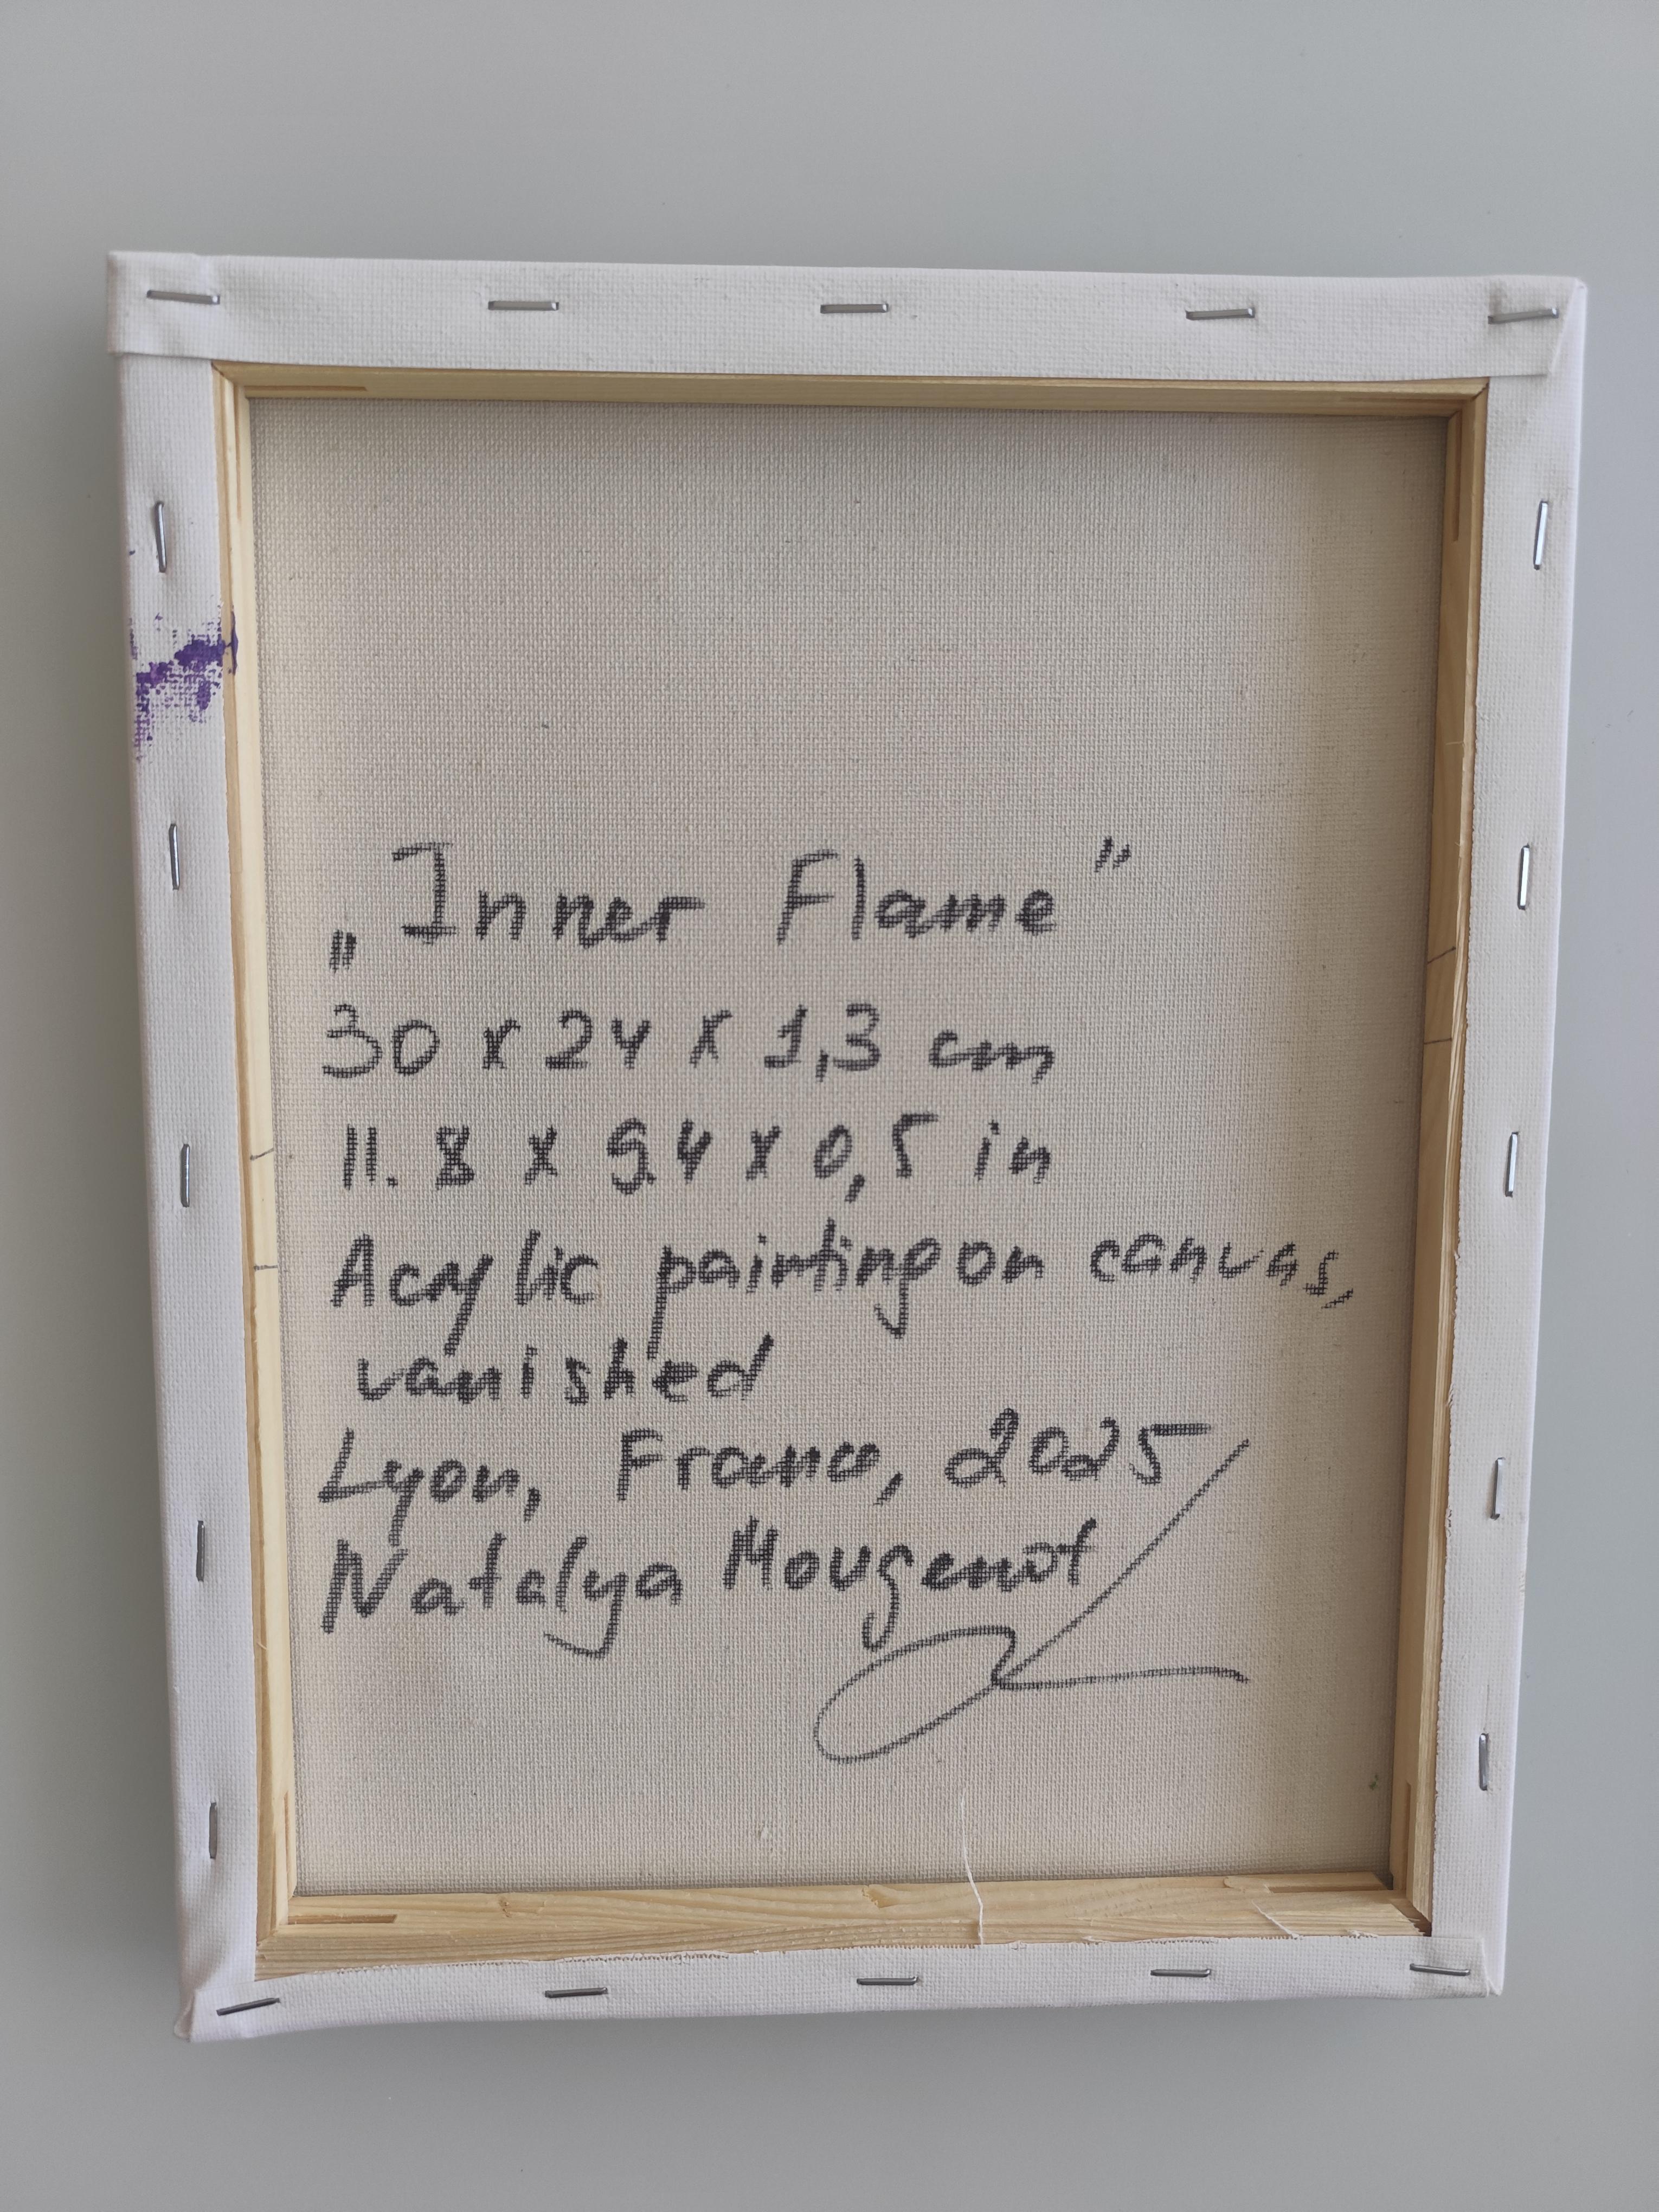 „Inner Flame”
30 x 24 x 1,3 cm
11.8 x 9.4 x 0,5 in
Acrylic painting on canvas,
vanished
Lyon, France, 2025
Natalya Mougenot